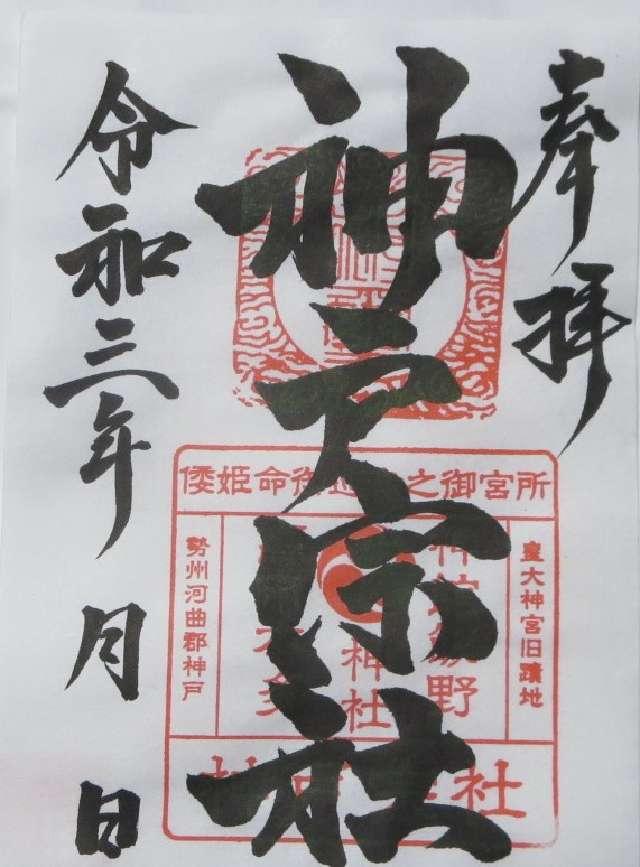 奉拝
神戸宗社
令和三年 月 日
倭姫命御之御宮所
皇大神宮旧蹟地
神館飯野
神社
勢州河曲郡神戸
社